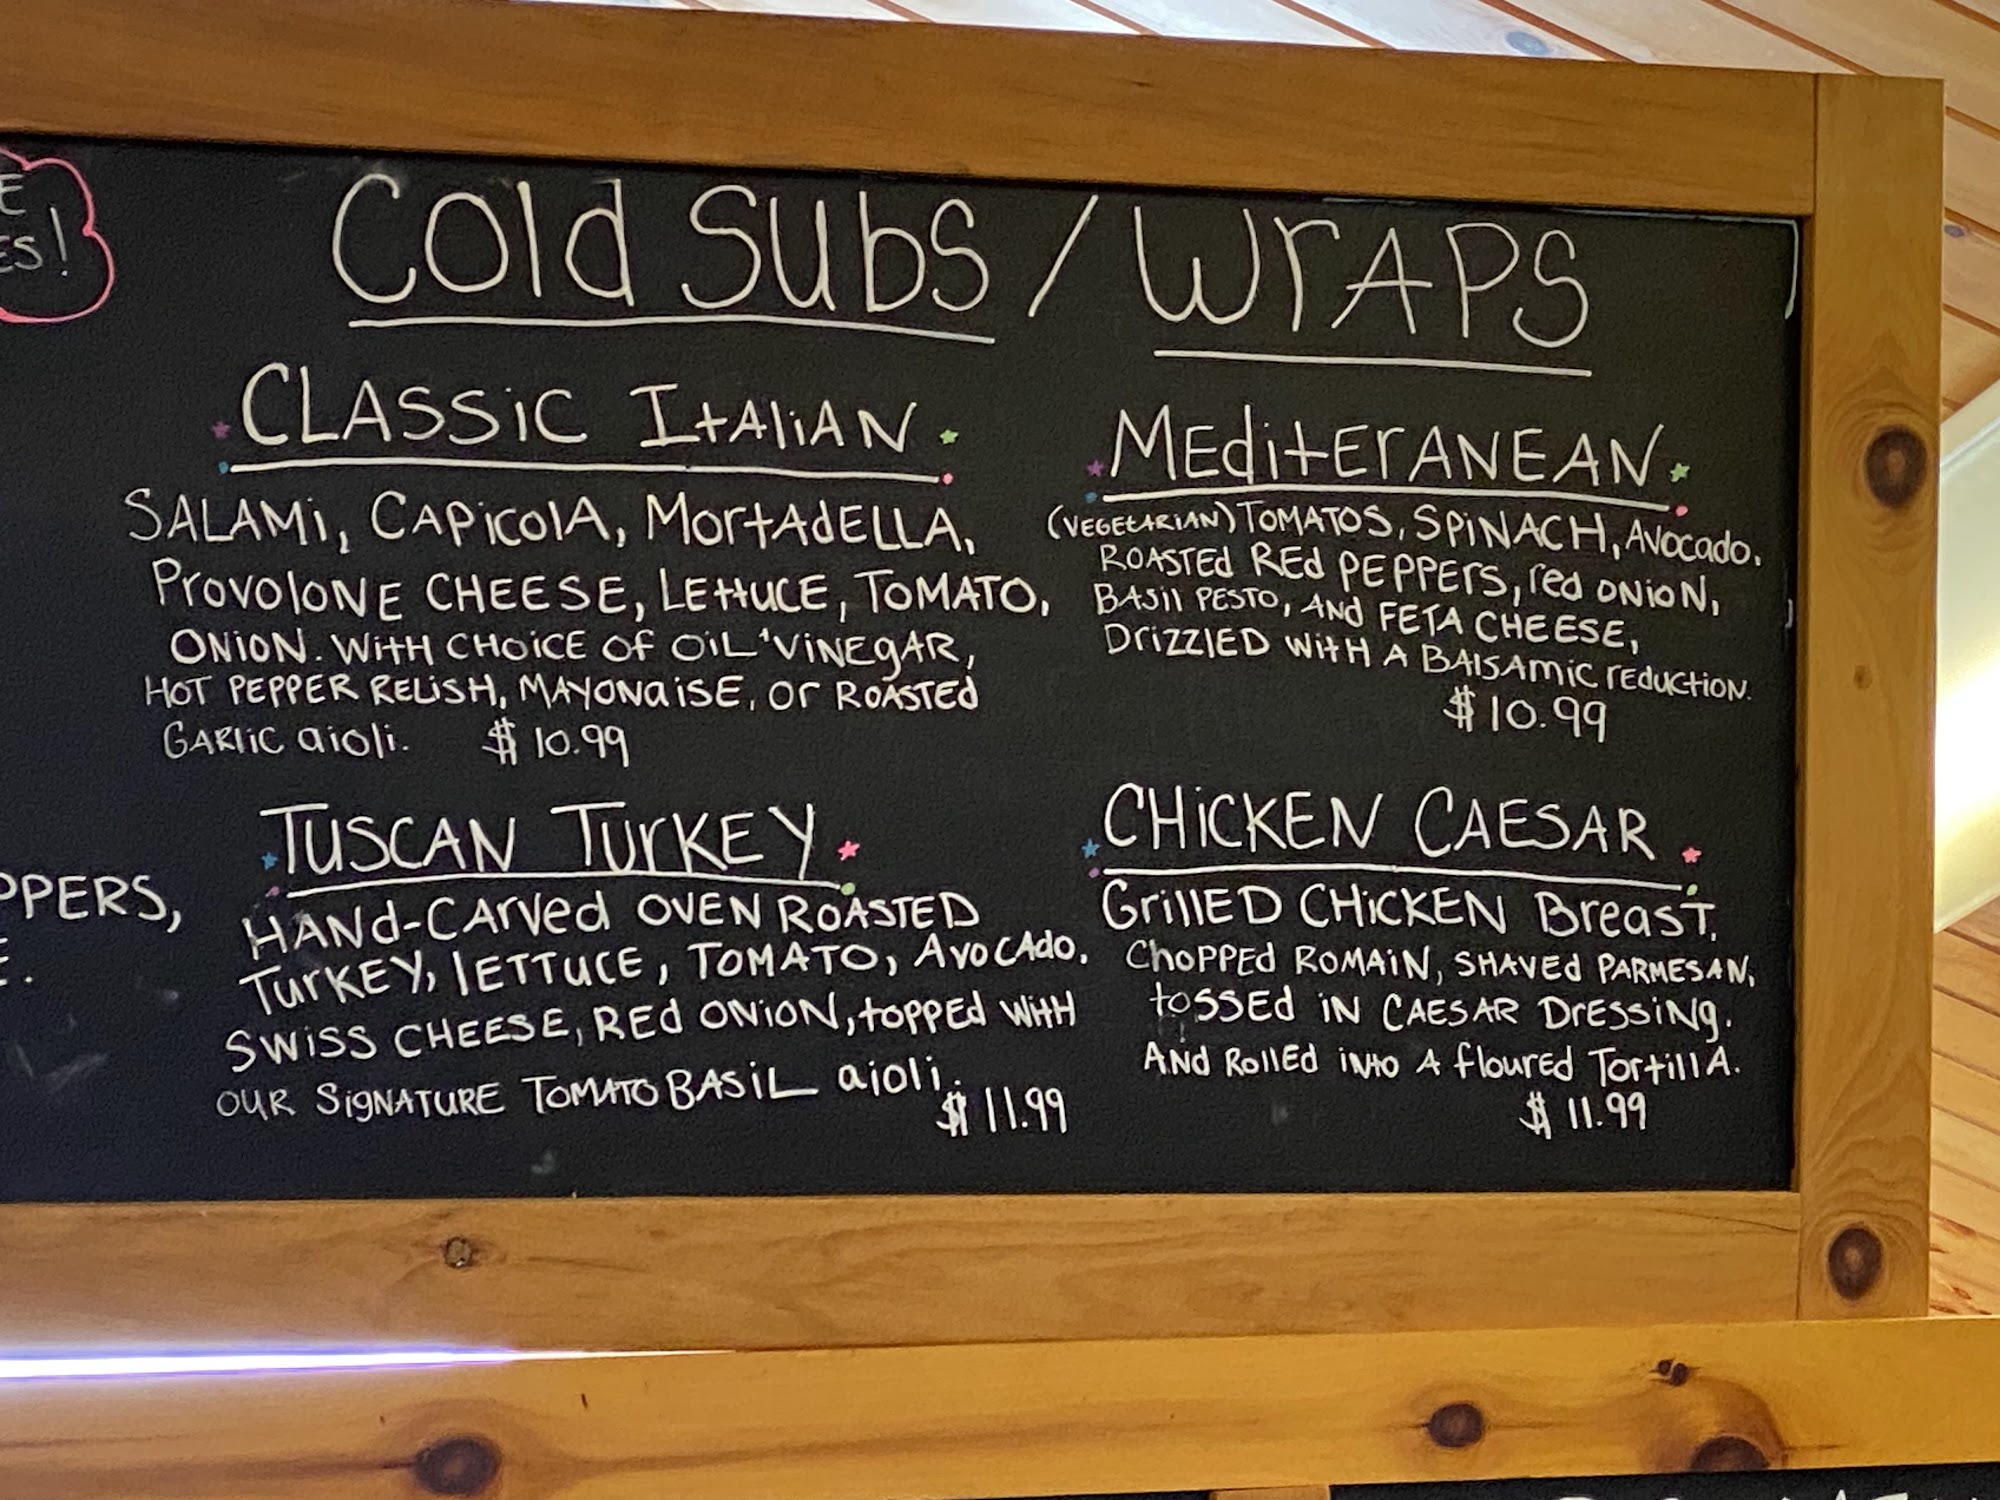 E
ES!
Cold Subs / Wraps
CLASSIC ITALIAN
SALAMI, CAPICOLA, MORTADELLA,
PROVOLONE CHEESE, LETTUCE, TOMATO,
ONION. WITH CHOICE OF OIL 'VINEGAR,
HOT PEPPER RELISH, MAYONAISE, OR ROASTED
GARLIC aioli. $10.99
MEDITERANEAN
(VEGETARIAN) TOMATOS, SPINACH, AVOCADO,
ROASTED RED PEPPERS, red ONION,
BASIL PESTO, AND FETA CHEESE,
DRIZZLED WITH A BALSAMIC REDUCTION.
$10.99
TUSCAN TURKEY
HAND-CARVED OVEN ROASTED
TURKEY, LETTUCE, TOMATO, AVOCADO,
SWISS CHEESE, RED ONION, TOPPED WITH
OUR SIGNATURE TOMATO BASIL aioli.
$11.99
CHICKEN CAESAR
GRILLED CHICKEN Breast,
CHOPPED ROMAIN, SHAVED PARMESAN,
tOSSED IN CAESAR DRESSING.
AND ROLLED INTO A floured TORTILLA.
$11.99
PPERS,
E.